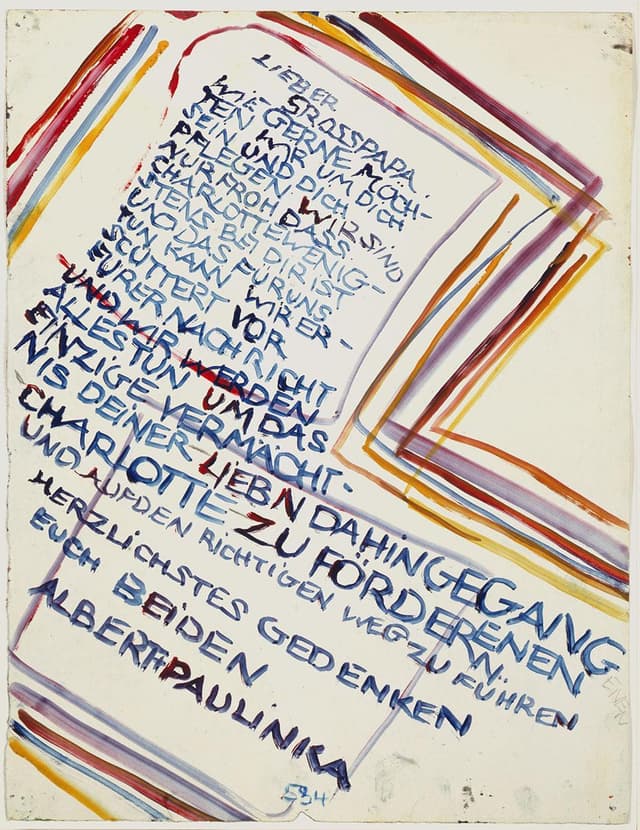 LIEBER
GROSSPAPA.
WIE GERNE MÖCH-
TEN WIR UM DICH
SEIN UND DICH
PFLEGEN. WIR SIND
NUR FROH DASS
CHARLOTTE WENIG-
STENS BEI DIR IST
UND DAS FÜR UNS
TUN KANN WIR ER-
SCÜTTERT VOR
EURER NACHRICHT
UND WIR WERDEN
ALLES TUN UM DAS
EINZIGE VERMÄCHT-
NIS DEINER LIEBN DAHINGEGANG
ENEN
CHARLOTTE ZU FÖRDERN
UND AUF DEN RICHTIGEN WEG ZU FÜHREN
HERZLICHSTES GEDENKEN
EUCH BEIDEN
ALBERT PAULINKA